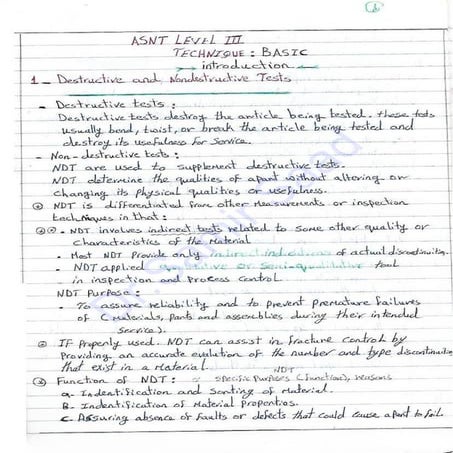 ASNT LEVEL III
TECHNIQUE : BASIC
introduction
1 - Destructive and Nondestructive Tests
- Destructive tests :
Destructive tests destroy the article being tested. these tests
usually bend, twist, or break the article being tested and
destroy its usefulness for service.
- Non-destructive tests :
NDT are used to supplement destructive tests.
NDT determine the qualities of a part without altering or
changing its physical qualities or usefulness.
NDT is differentiated from other measurements or inspection
techniques in that :
- NDT involves indirect tests related to some other quality or
characteristics of the material
- Most NDT Provide only indirect indications of actual discontinuities.
- NDT applied or semi-quantitative tool
in inspection and Process control.
NDT Purpose :
- To assure reliability and to prevent premature failures
of (materials, parts and assemblies during their intended
service).
IF Properly used. NDT can assist in fracture control by
Providing an accurate evalution of the number and type discontinuities
that exist in a material.
Function of NDT : NDT specific purposes (function), reasons
a- Indentification and Sorting of Material.
B- Indentification of Material Properties.
C- Assuring absence of faults or defects that could cause a part to fail.